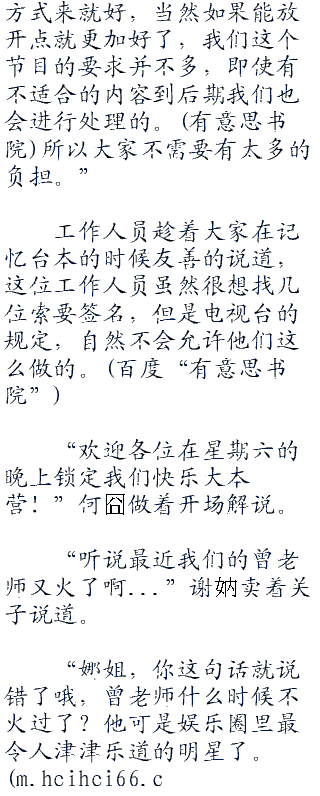 方式来就好，当然如果能放
开点就更加好了，我们这个
节目的要求并不多，即使有
不适合的内容到后期我们也
会进行处理的。(有意思书
院)所以大家不需要有太多的
负担。”
工作人员趁着大家在记
忆台本的时候友善的说道，
这位工作人员虽然很想找几
位索要签名，但是电视台的
规定，自然不会允许他们这
么做的。(百度“有意思书
院”)
“欢迎各位在星期六的
晚上锁定我们快乐大本
营！”何囧做着开场解说。
“听说最近我们的曾老
师又火了啊...”谢妠卖着关
子说道。
“娜姐，你这句话就说
错了哦，曾老师什么时候不
火过了？他可是娱乐圈里最
令人津津乐道的明星了。
(m.hcihci66.c